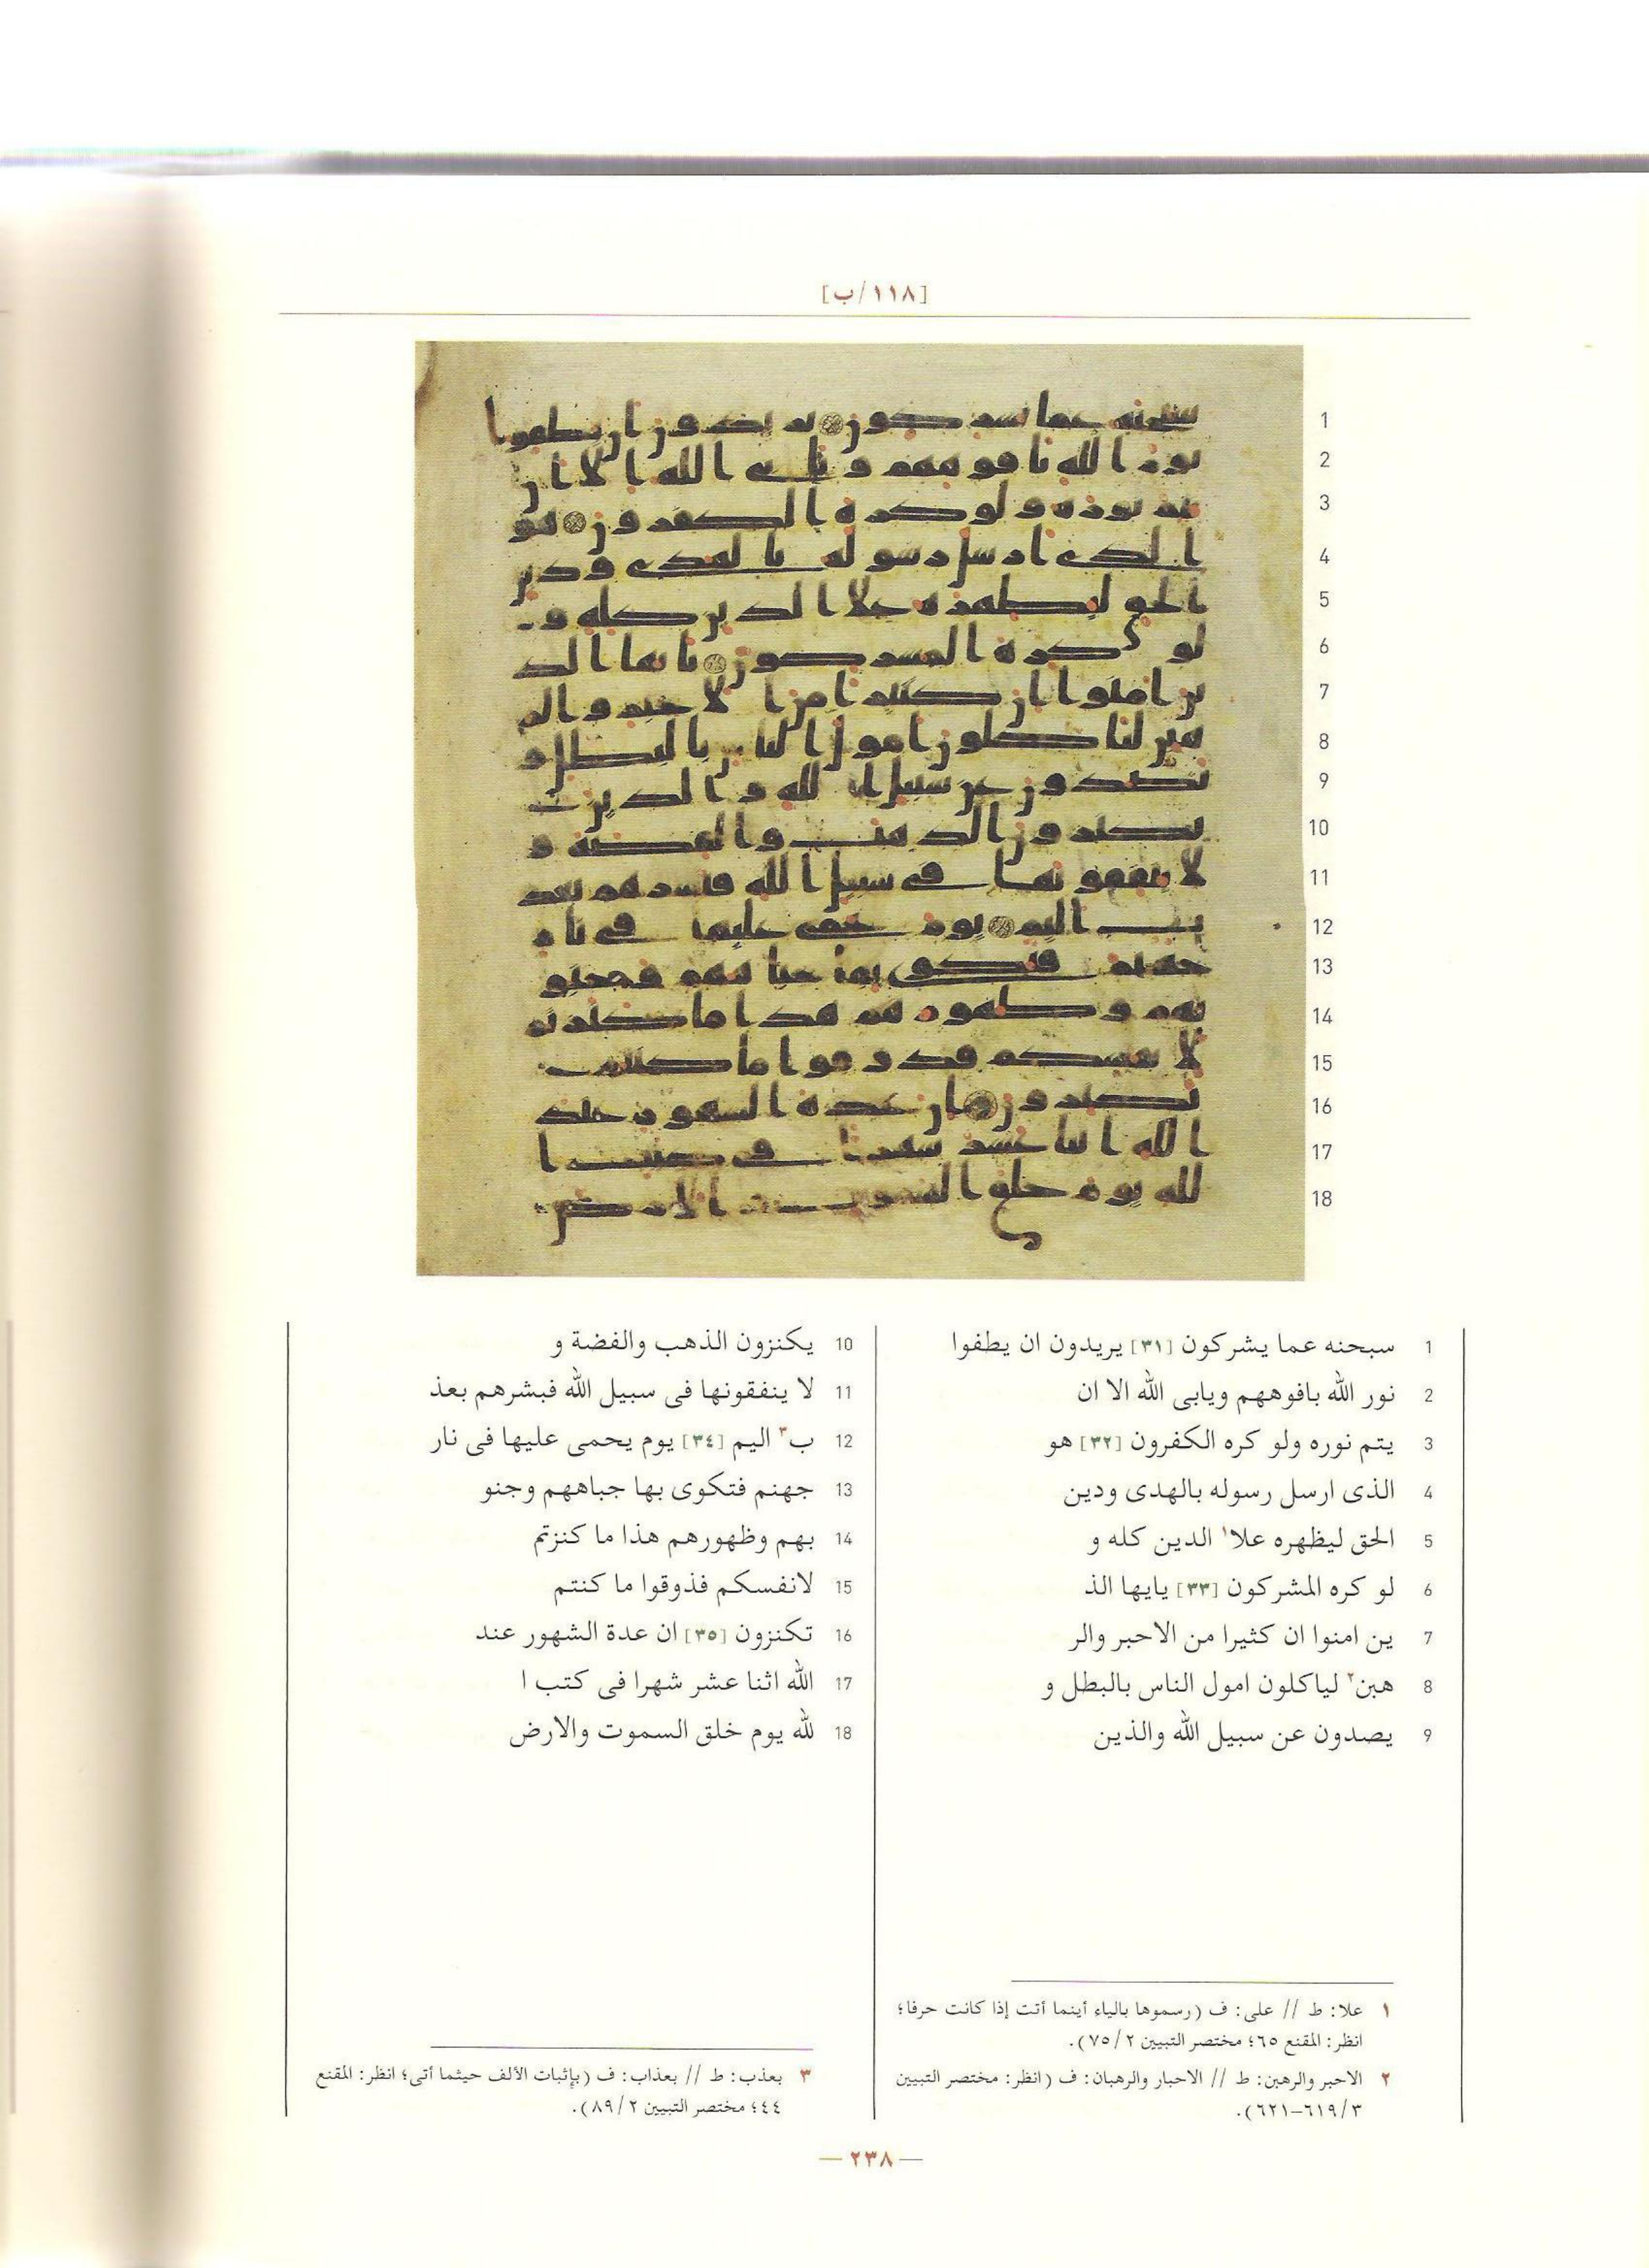 [١١٨/ب]
1
2
3
4
5
6
7
8
9
10
11
12
13
14
15
16
17
18
1 سبحنه عما يشركون [٣١] يريدون ان يطفوا
2 نور الله بافوههم ويابى الله الا ان
3 يتم نوره ولو كره الكفرون [٣٢] هو
4 الذى ارسل رسوله بالهدى ودين
5 الحق ليظهره علا١ الدين كله و
6 لو كره المشركون [٣٣] يايها الذ
7 ين امنوا ان كثيرا من الاحبر والر
8 هبن٢ لياكلون امول الناس بالبطل و
9 يصدون عن سبيل الله والذين
10 يكنزون الذهب والفضة و
11 لا ينفقونها فى سبيل الله فبشرهم بعذ
12 ب٣ اليم [٣٤] يوم يحمى عليها فى نار
13 جهنم فتكوى بها جباههم وجنو
14 بهم وظهورهم هذا ما كنزتم
15 لانفسكم فذوقوا ما كنتم
16 تكنزون [٣٥] ان عدة الشهور عند
17 الله اثنا عشر شهرا فى كتب ا
18 لله يوم خلق السموت والارض
١ علا: ط // على: ف (رسموها بالياء أينما أتت إذا كانت حرفا؛
انظر: المقنع ٦٥؛ مختصر التبيين ٢/ ٧٥).
٢ الاحبر والرهبن: ط // الاحبار والرهبان: ف (انظر: مختصر التبيين
٣/ ٦١٩–٦٢١).
٣ بعذب: ط // بعذاب: ف (بإثبات الألف حيثما أتى؛ انظر: المقنع
٤٤؛ مختصر التبيين ٢/ ٨٩).
— ٢٣٨ —